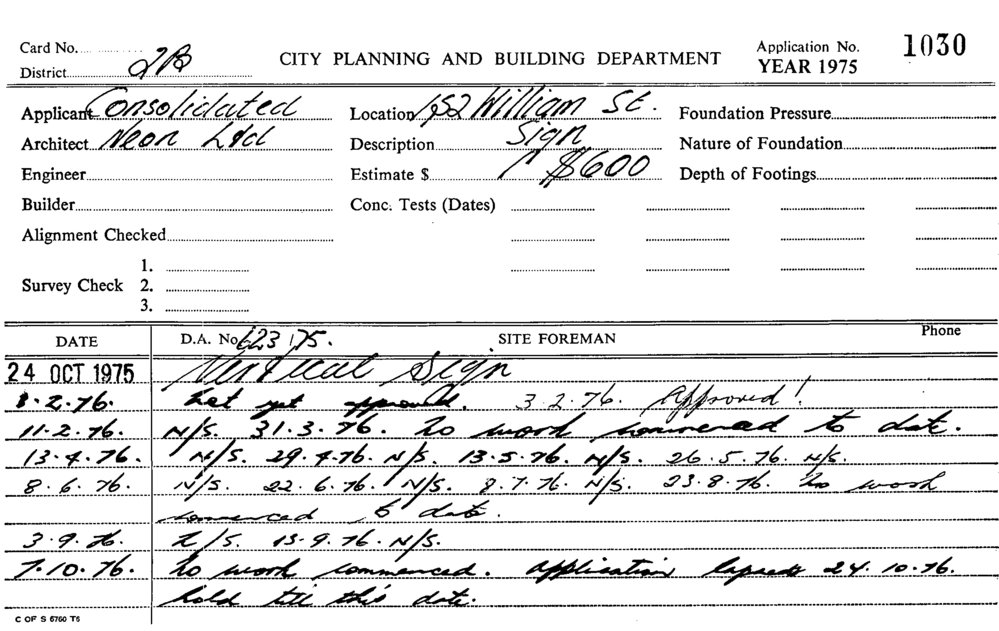 Card No.
District 2B
CITY PLANNING AND BUILDING DEPARTMENT
Application No. 1030
YEAR 1975
Applicant Consolidated
Location 152 William St.
Foundation Pressure
Architect Neon Ltd
Description Sign
Nature of Foundation
Engineer
Estimate $ $600
Depth of Footings
Builder
Conc. Tests (Dates)
Alignment Checked
Survey Check
1.
2.
3.
DATE
D.A. No 623/75.
SITE FOREMAN
Phone
24 OCT 1975 Vertical Sign
2.76. Not yet approved. 3.2.76. Approved!
11.2.76. N/S. 31.3.76. No work commenced to date.
13.4.76. N/S. 29.4.76. N/S. 13.5.76. N/S. 26.5.76. N/S.
8.6.76. N/S. 22.6.76. N/S. 8.7.76. N/S. 23.8.76. No work
commenced to date.
3.9.76. N/S. 13.9.76. N/S.
7.10.76. No work commenced. Application lapses 24.10.76.
hold till this date.
C OF S 6760 T6